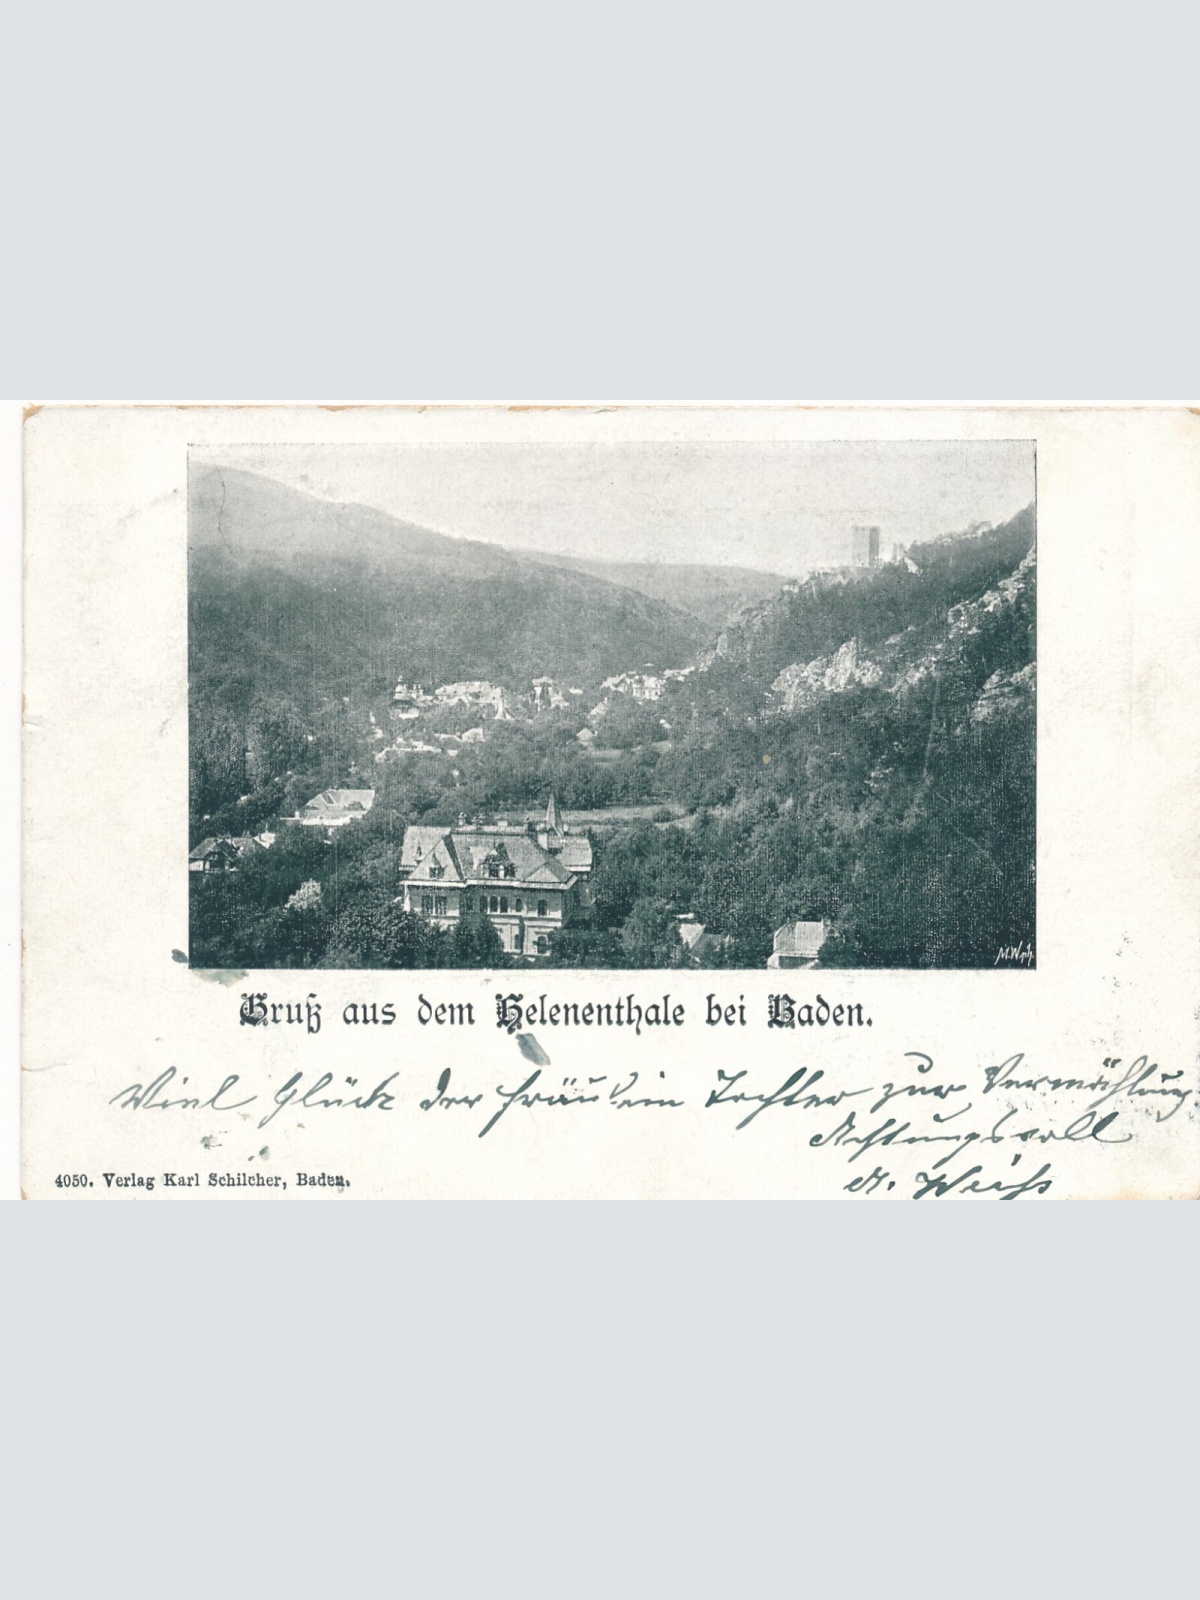 M.W.ph.
Gruß aus dem Helenenthale bei Baden.
Viel Glück der Fräulein Tochter zur Vermählung
Achtungsvoll
A. Weiss
4050. Verlag Karl Schilcher, Baden.